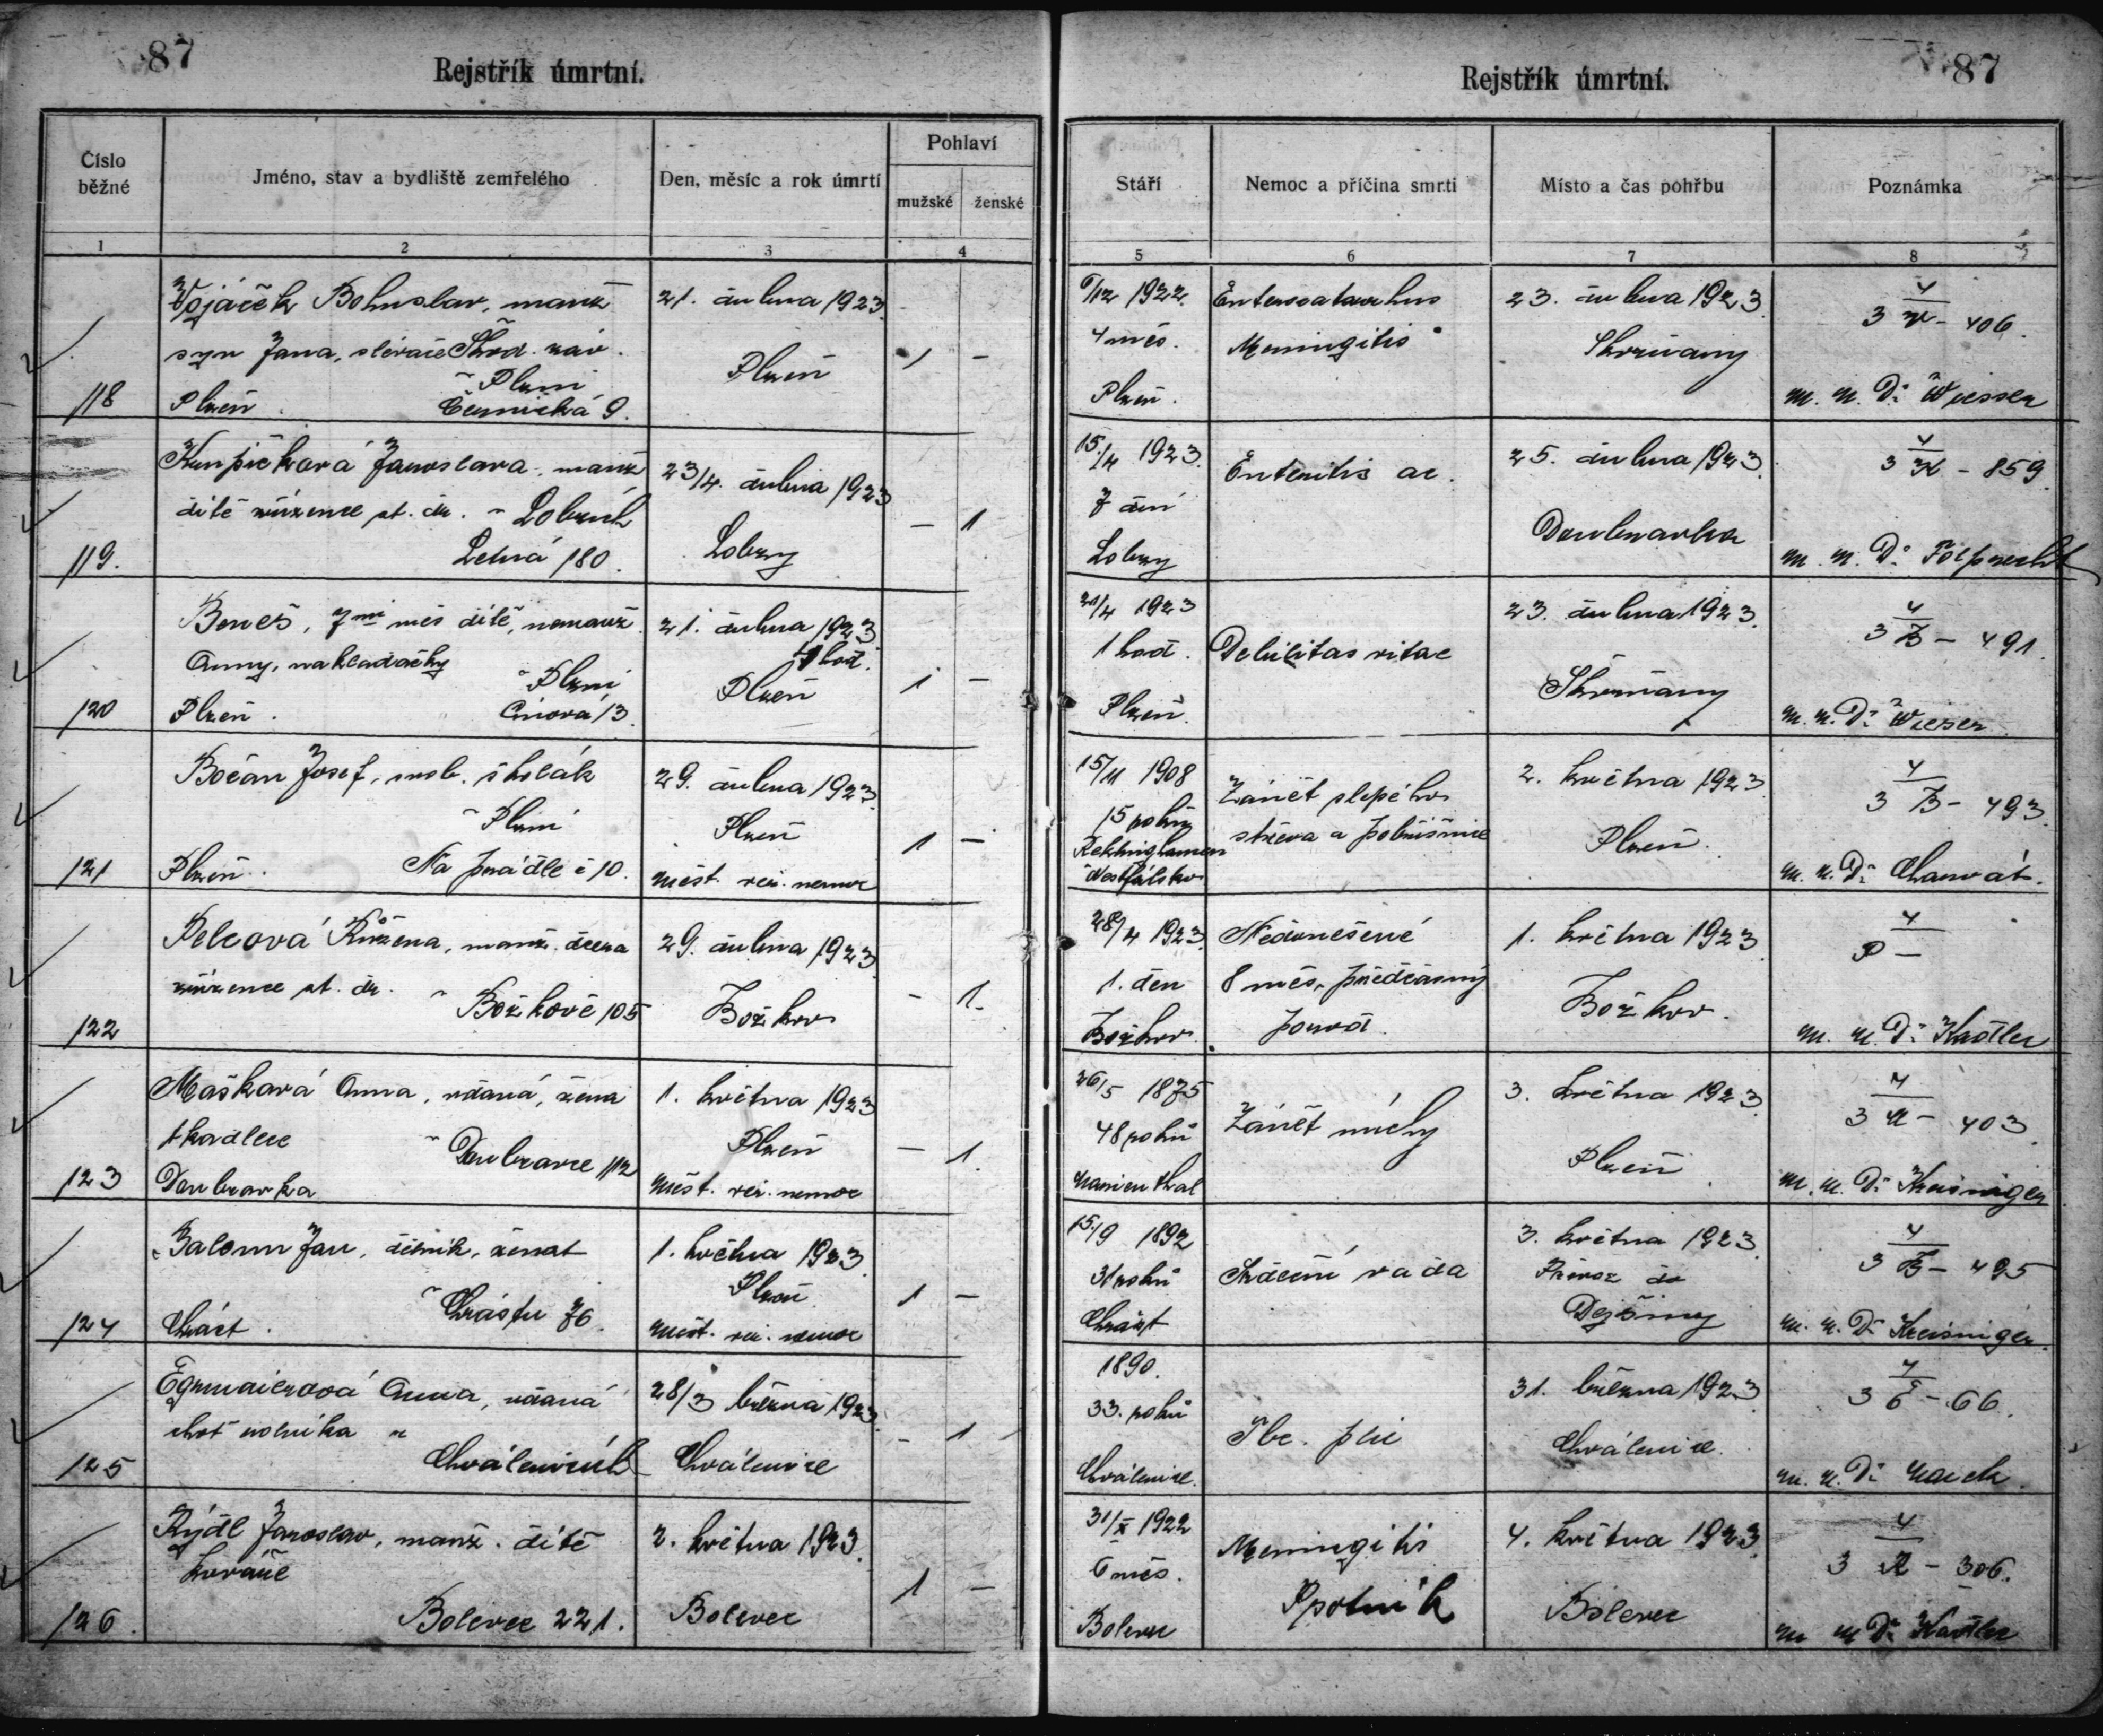 87
Rejstřík úmrtní.
Číslo běžné
Jméno, stav a bydliště zemřelého
Den, měsíc a rok úmrtí
Pohlaví
mužské
ženské
1
2
3
4
Vojáček Bohuslav, manž
21. dubna 1923
syn Jana, slévače Škod. záv.
1 —
v Plzni
Plzeň
118
Plzeň.
9.
Jaroslava, manž
23/4. dubna 1923
dítě zřízence st. dr. v Lobzích
— 1
119.
Letná 180.
Lobzy
Beneš, 7mi měs dítě, nemanž
21. dubna 1923
1 hod.
Anny, nakladačky
v Plzni
Plzeň
1 —
120
Plzeň.
Cínová 13.
Bočan Josef, svob. školák
29. dubna 1923
v Plzni
Plzeň
1 —
121
Plzeň.
Na prádle č 10.
měst. vš. nemoc
Pelcová Růžena, manž. dcera
29. dubna 1923
zřízence st. dr.
v Božkově 105
Božkov
- 1.
122
Mašková Anna, vdaná, žena
1. května 1923
tkadlce
v Doubravce 112
Plzeň
— 1.
123
Doubravka
měst. vš. nemoc
Jan, dělník, ženat
1. května 1923
Plzeň
1 —
v Chrástu 76.
124
Chrást.
měst. vš. nemoc
Anna, vdaná
28/3 března 1923
choť rolníka v
- 1
125
Chválenicích
Chválenice
Rýdl Jaroslav, manž. dítě
2. května 1923.
kováře
1 —
126.
Bolevec 221.
Bolevec
Rejstřík úmrtní.
87
Stáří
Nemoc a příčina smrti
Místo a čas pohřbu
Poznámka
5
6
7
8
6/12 1922
Enterocatarrhus
23. dubna 1923
4
3 V - 406.
4 měs.
Meningitis
Skvrňany
Plzeň.
m. n. Dr Wiesser
15./4 1923.
Enteritis ac.
25. dubna 1923
4
3 K - 859
7 dní
Doubravka
Lobzy
m. n. Dr
21/4 1923
23. dubna 1923.
4
3 B - 491.
1 hod.
Debilitas vitae
Skvrňany
Plzeň.
m. n. Dr Wiesser
15/11 1908
Zánět slepého
2. května 1923
4
3 B - 493.
15 roků
střeva a pobřišnice
Plzeň.
Westfálsko
m. n. Dr Charvát.
28/4 1923
Nedonešené
1. května 1923
4
P —
1. den
8 měs. předčasný
Božkov.
Božkov.
porod.
m. n. Dr Kadlec
26/5 1875
3. května 1923
4
3 M - 403
48 roků
Zánět míchy
Plzeň
Marienthal
m. n. Dr Kreisinger
15./9 1892
3. května 1923.
4
3 B - 495
31 roků
Srdeční vada
Převoz do
Chrást
Dejšiny
m. n. Dr Kreisinger.
1890.
31. března 1923
4
3 E - 66.
33. roků
Tbc. plic
Chválenice.
Chválenice.
m. n. Dr
31/X 1922
Meningitis
4. května 1923
4
3 R - 306.
6 měs.
Bolevec
Bolevec
m n Dr Kadlec